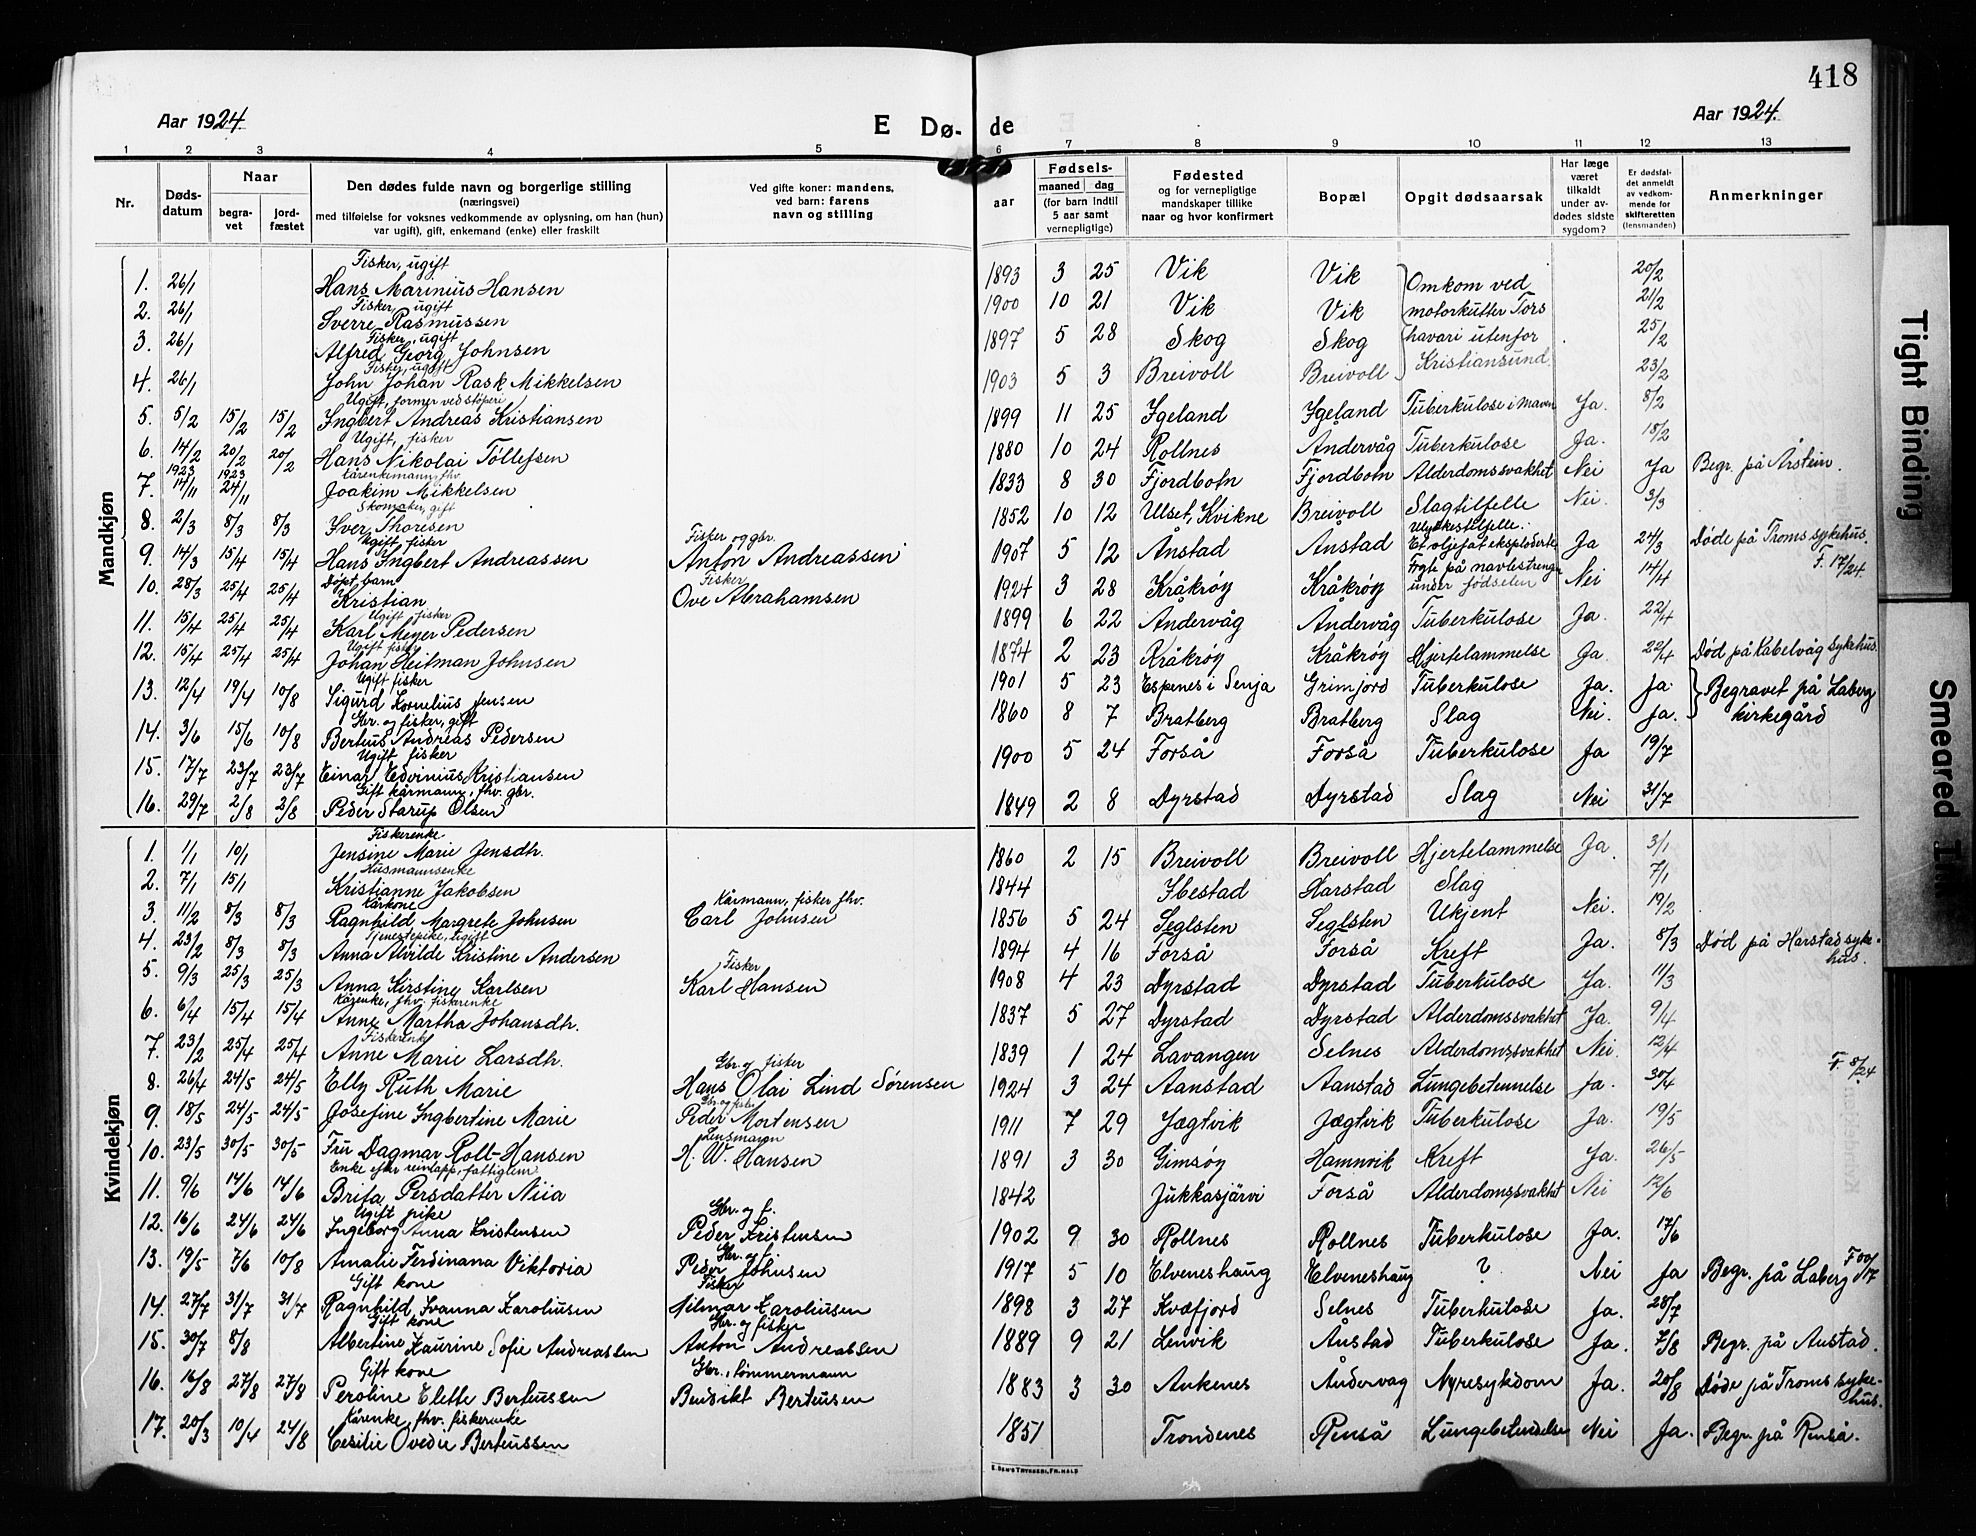 418
Aar 1924.
E Dø-
de
Aar 1924.
1 2 3 4 5 6 7 8 9 10 11 12 13
Nr.
Døds-
datum
Naar
begra-
vet
jord-
fæstet
Den dødes fulde navn og borgerlige stilling
(næringsvei)
med tilføielse for voksnes vedkommende av oplysning, om han (hun)
var ugift), gift, enkemand (enke) eller fraskilt
Ved gifte koner: mandens,
ved barn: farens
navn og stilling
aar
Fødsels-
maaned dag
(for barn indtil
5 aar samt
vernepligtige)
Fødested
og for vernepligtige
mandskaper tillike
naar og hvor konfirmert
Bopæl
Opgit dødsaarsak
Har læge
været
tilkaldt
under av-
dødes sidste
sygdom?
Er dødsfal-
det anmeldt
av vedkom-
mende for
skifteretten
(lensmanden)
Anmerkninger
Mandkjøn
Fisker, ugift
1. 26/1 Hans Marinius Hansen 1893 3 25 Vik Vik Omkom ved 20/2
Fisker, ugift
2. 26/1 Sverre Rasmussen 1900 10 21 Vik Vik motorkutter Tors 21/2
Fisker, ugift
3. 26/1 Alfred Georg Johnsen 1897 5 28 Skog Skog havari utenfor 25/2
Fisker, ugift
4. 26/1 John Johan Rask Mikkelsen 1903 5 3 Breivoll Breivoll Kristiansund 23/2
Ugift, former ved støperi
5. 5/2 15/2 15/2 Ingbert Andreas Kristiansen 1899 11 25 Igeland Igeland Tuberkulose i maven Ja. 8/2
Ugift, fisker
6. 14/2 20/2 20/2 Hans Nikolai Tollefsen 1880 10 24 Rollnes Andervåg Tuberkulose Ja. 18/2
1923 1923 Kårenkemann, fhv.
7. 14/11 24/11 Joakim Mikkelsen 1833 8 30 Fjordbotn Fjordbotn Alderdomssvakhet Nei Ja Begr. på Årstein.
Skomaker, gift
8. 2/3 8/3 8/3 Iver Thoresen 1852 10 12 Ulset, Kvikne Breivoll Slagtilfelle Nei. 3/3
Ugift fisker Fisker og gbr. Ulykkestilfelle.
9. 14/3 15/4 15/4 Hans Ingbert Andreassen Anton Andreassen 1907 5 12 Anstad Anstad Et oljefat eksploderte Ja 24/3 Døde på Troms sykehus.
Døpt, barn Fisker F. 17/24.
10. 28/3 25/4 25/4 Kristian Ove Abrahamsen 1924 3 28 Kråkrøy Kråkrøy Trykk på navlestrengen under fødselen Nei 14/4
Ugift fisker
11. 15/4 25/4 25/4 Karl Meyer Pedersen 1899 6 22 Andervåg Andervåg Tuberkulose Ja. 22/4
Ugift fisker
12. 15/4 25/4 25/4 Johan Heitman Johnsen 1874 2 23 Kråkrøy Kråkrøy Hjertelammelse Ja. 22/4 Død på Kabelvåg sykehus.
Ugift fisker
13. 12/4 19/4 10/8 Sigurd Kornelius Jensen 1901 5 23 Espenes i Senja Grimjord Tuberkulose Ja. Ja. Begravet på Laberg
Gbr. og fisker, gift
14. 3/6 15/6 10/8 Berteus Andreas Pedersen 1860 8 7 Bratberg Bratberg Slag Nei. Ja. kirkegård
Ugift fisker
15. 17/7 23/7 23/7 Einar Edvinius Kristiansen 1900 5 24 Forså Forså Tuberkulose Ja 19/7
Gift kårmann, fhv. gbr.
16. 29/7 2/8 2/8 Peder Starup Olsen 1849 2 8 Dyrstad Dyrstad Slag Nei 31/7
Kvindekjøn
Fiskerenke
1. 1/1 10/1 Jensine Marie Jensdh. 1860 2 15 Breivoll Breivoll Hjertelammelse Ja. 3/1
Husmannsenke
2. 7/1 15/1 Kristianne Jakobsen 1844 Ibestad Harstad Slag 7/1
Kårkone Kårmann, fisker fhv.
3. 11/2 8/3 8/3 Ragnhild Margrete Johnsen Carl Johnsen 1856 5 24 Seglsten Seglsten Ukjent Nei. 19/2
Tjenestepike, ugift
4. 23/2 8/3 8/3 Anna Alvilde Kristine Andersen 1894 4 16 Forså Forså Kreft Ja. 8/3 Død på Harstad syke-
hus.
Fisker
5. 9/3 25/3 25/3 Anna Kirstine Karlsen Karl Hansen 1908 4 23 Dyrstad Dyrstad Tuberkulose Ja. 11/3
Kårenke, fhv. fiskerenke
6. 6/4 15/4 15/4 Anne Martha Johansdh. 1837 5 27 Dyrstad Dyrstad Alderdomssvakhet Ja. 9/4
Fiskerenke
7. 23/2 25/4 25/4 Anne Marie Larsdh. 1839 1 24 Lavangen Selnes Alderdomssvakhet Nei. 12/4
Gbr. og fisker F. 8/24
8. 26/4 24/5 24/5 Elly Ruth Marie Hans Olai Lind Sørensen 1924 3 24 Aanstad Aanstad Lungebetennelse Ja. 30/4
Gbr. og fisker
9. 18/5 24/5 24/5 Josefine Ingbertine Marie Peder Mortensen 1911 7 29 Jægtvik Jægtvik Tuberkulose Ja. 19/5
Lensmann
10. 23/5 30/5 30/5 Fru Dagmar Roll-Hansen H. W. Hansen 1891 3 30 Gimsøy Hamnvik Kreft Ja. 26/5
Enke efter reinlapp, fattiglem
11. 9/6 14/6 14/6 Brita Persdatter Niia 1842 Jukkasjärvi Forså Alderdomssvakhet Nei 12/6
Ugift pike Gbr. og f.
12. 16/6 24/6 24/6 Ingeborg Anna Kristensen Peder Kristensen 1902 9 30 Rollnes Rollnes Tuberkulose Ja. 17/6
Gbr. og f.
13. 19/5 7/6 10/8 Amalie Ferdinana Viktoria Peder Johnsen 1917 5 10 Elveneshaug Elveneshaug ? Nei Ja Begr. på Laberg
Gift kone Fisker
14. 27/7 31/7 31/7 Ragnhild Ivanna Karoliusen Hilmar Karoliusen 1898 3 27 Kvæfjord Selnes Tuberkulose Ja. 28/7
Gift kone Gbr. og fisker
15. 30/7 8/8 Albertine Laurine Sofie Andreassen Anton Andreassen 1889 9 21 Lenvik Anstad Tuberkulose Ja. 7/8 Begr. på Anstad.
Gift kone Gbr., tømmermann
16. 16/8 27/8 27/8 Peroline Elette Berteussen Bendikt Berteusen 1883 3 30 Ankenes Åndervag Nyresykdom Ja. 20/8 Døde på Troms syke-
hus.
Kårenke, fhv. fiskerenke
17. 20/3 10/4 24/8 Cecilie Ovedie Berteussen 1851 Trondenes Renså Lungebetendelse Nei Ja. Begr. på Renså.
E. SEM'S TRYKKERI, FR.HALD
Tight Binding
Smeared